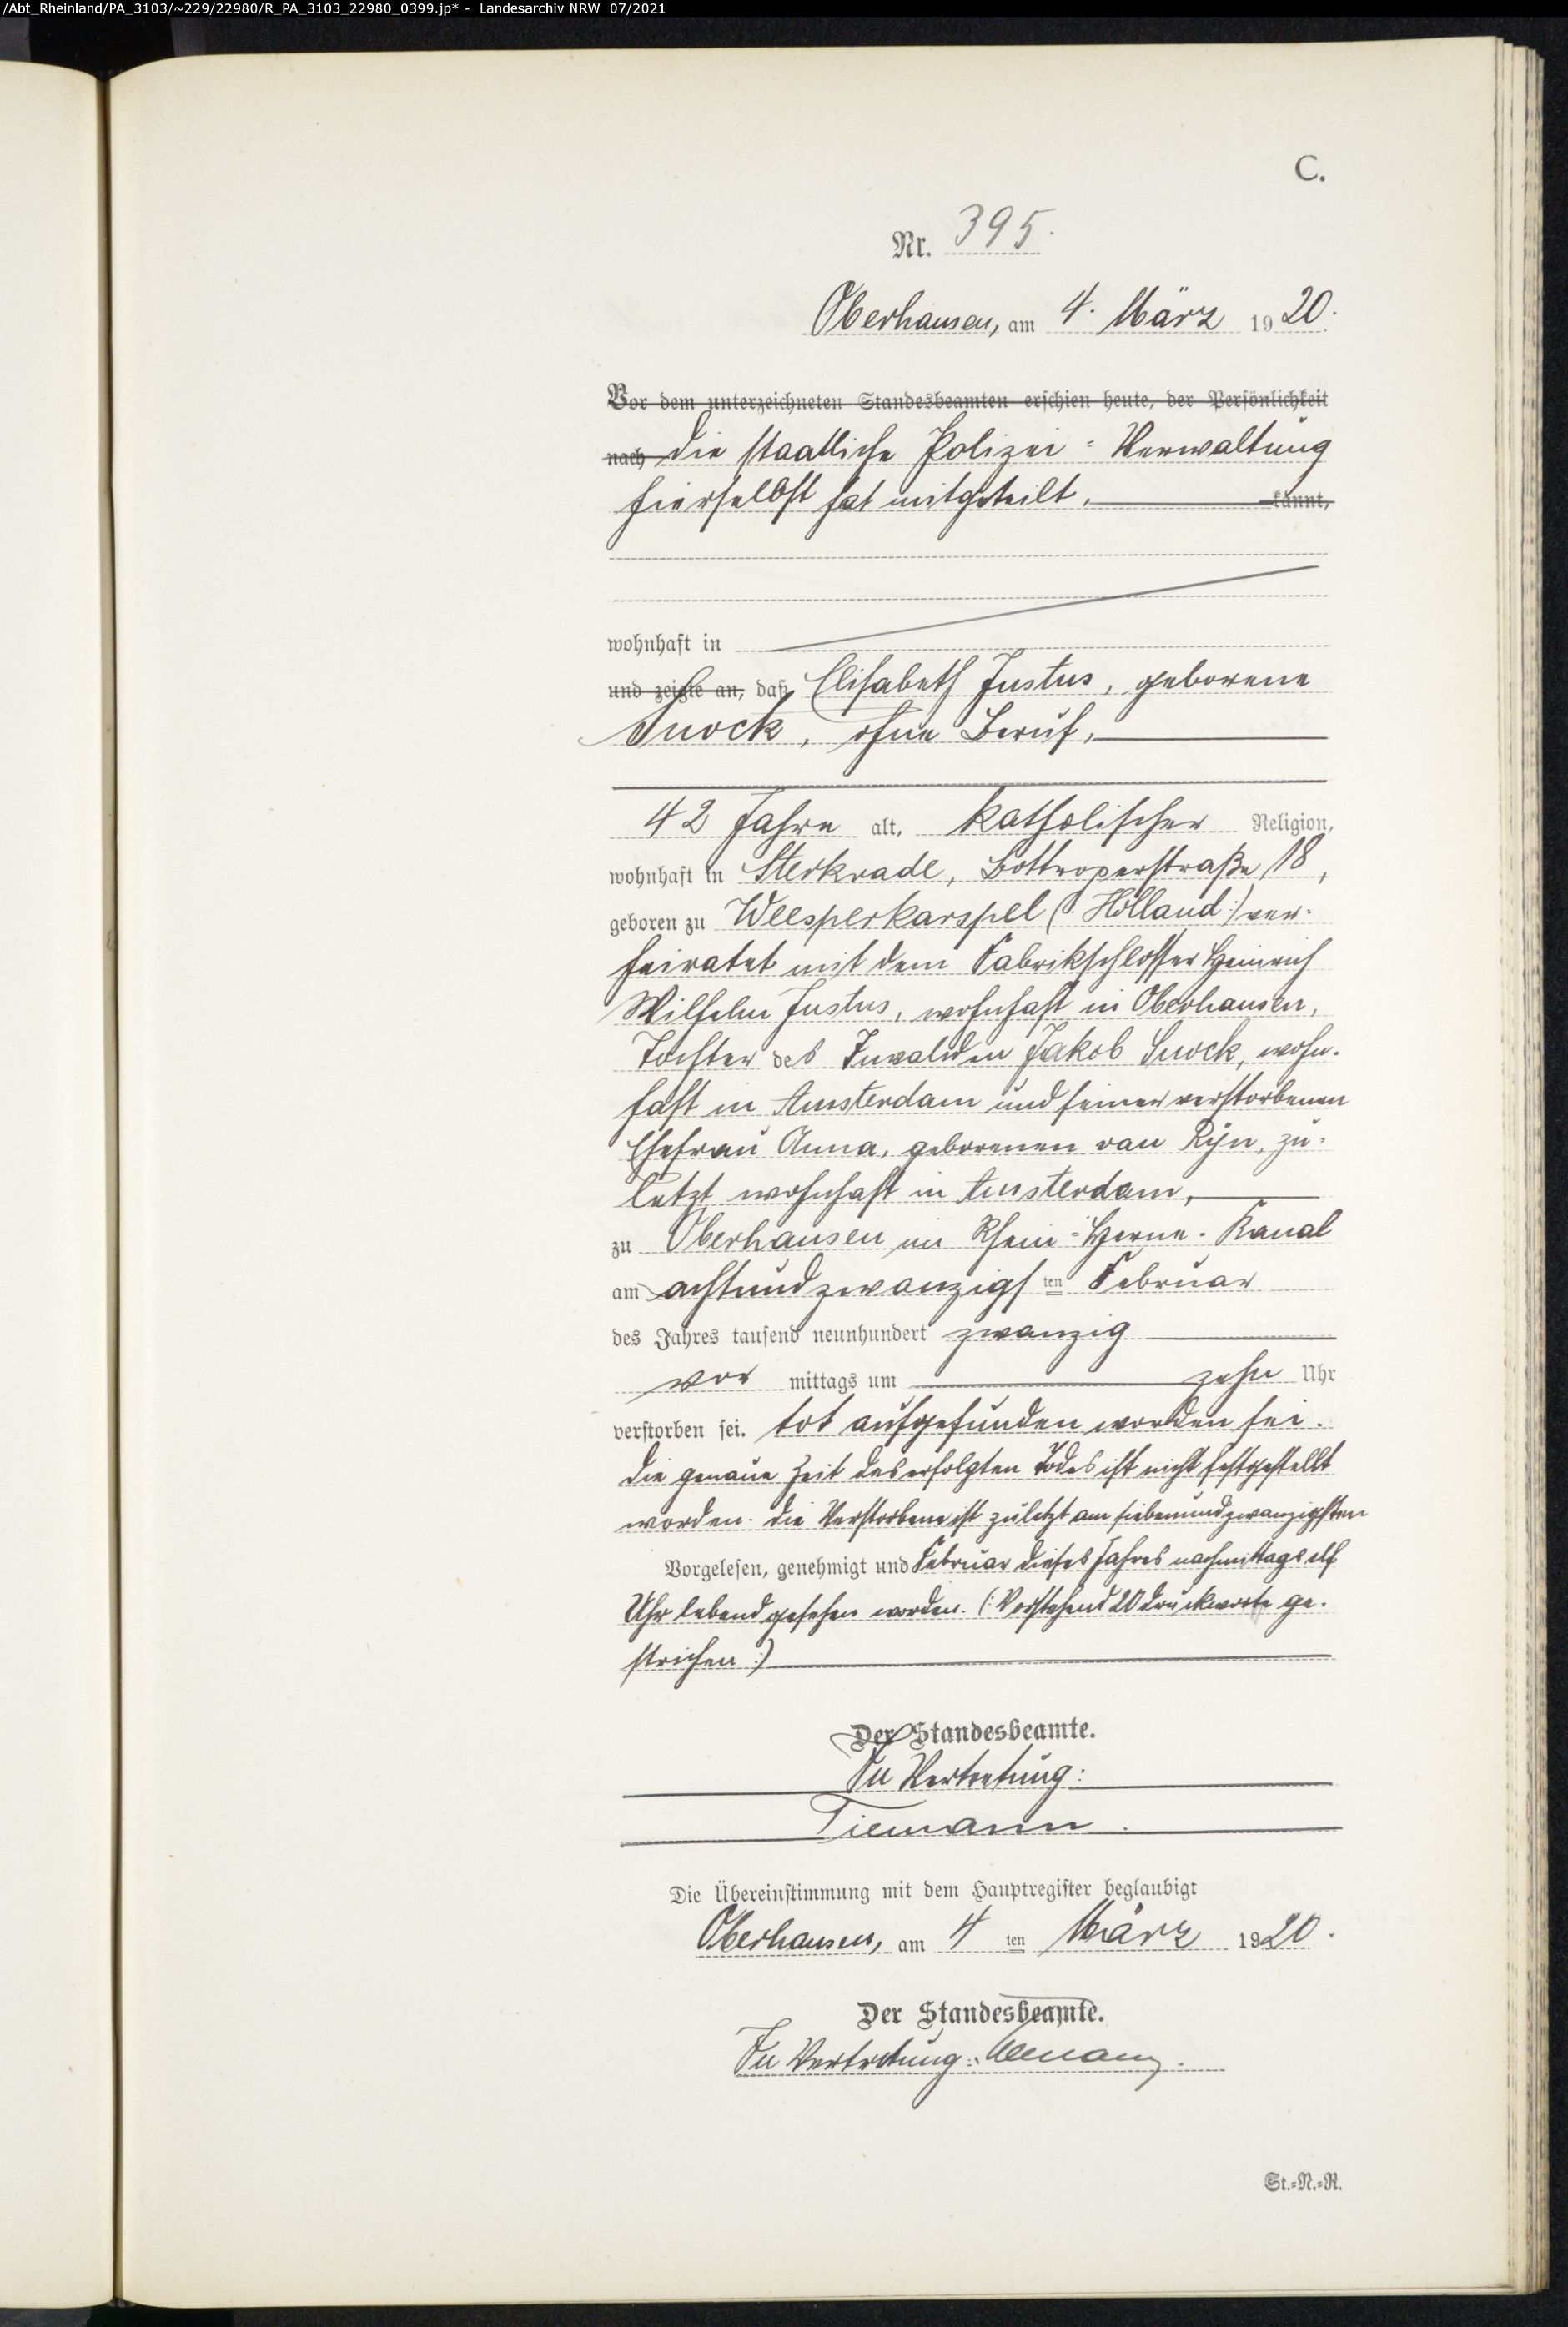 /Abt_Rheinland/PA_3103/~229/22980/R_PA_3103_22980_0399.jp* - Landesarchiv NRW 07/2021
C.
Nr. 395.
Oberhausen, am 4. März 1920.
Vor dem unterzeichneten Standesbeamten erschien heute, der Persönlichkeit
nach die staatliche Polizei-Verwaltung
hierselbst hat mitgeteilt, kannt,
wohnhaft in
und zeigte an, daß Elisabeth Justus, geborene
Snock, ohne Beruf,
42 Jahre alt, katholischer Religion,
wohnhaft in Sterkrade, Bottroperstraße 18,
geboren zu Weesperkarspel (: Holland :) ver-
heiratet mit dem Fabrikschlosser Heinrich
Wilhelm Justus, wohnhaft in Oberhausen,
Tochter des Invaliden Jakob Snock, wohn-
haft in Amsterdam und seiner verstorbenen
Ehefrau Anna, geborenen van Rijn, zu-
letzt wohnhaft in Amsterdam,
zu Oberhausen im Rhein-Herne-Kanal
am achtundzwanzigsten Februar
des Jahres tausend neunhundert zwanzig
vor mittags um zehn Uhr
verstorben sei. tot aufgefunden worden sei.
Die genaue Zeit des erfolgten Todes ist nicht festgestellt
worden. Die Verstorbene ist zuletzt am siebenundzwanzigsten
Vorgelesen, genehmigt und Februar dieses Jahres nachmittags elf
Uhr lebend gesehen worden. (: Vorstehend 20 Druckworte ge-
strichen :)
Der Standesbeamte.
In Vertretung:
Tiemann.
Die Übereinstimmung mit dem Hauptregister beglaubigt
Oberhausen, am 4ten März 1920.
Der Standesbeamte.
In Vertretung:
St.-N.-R.